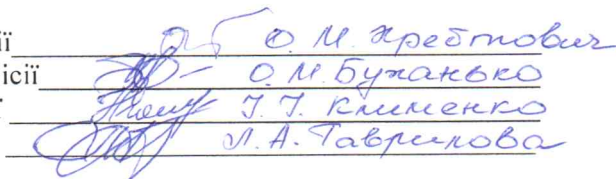 ії О. М. Хребтович
ісії О. М. Буханько
ї І. І. Клименко
Л. А. Гаврилова